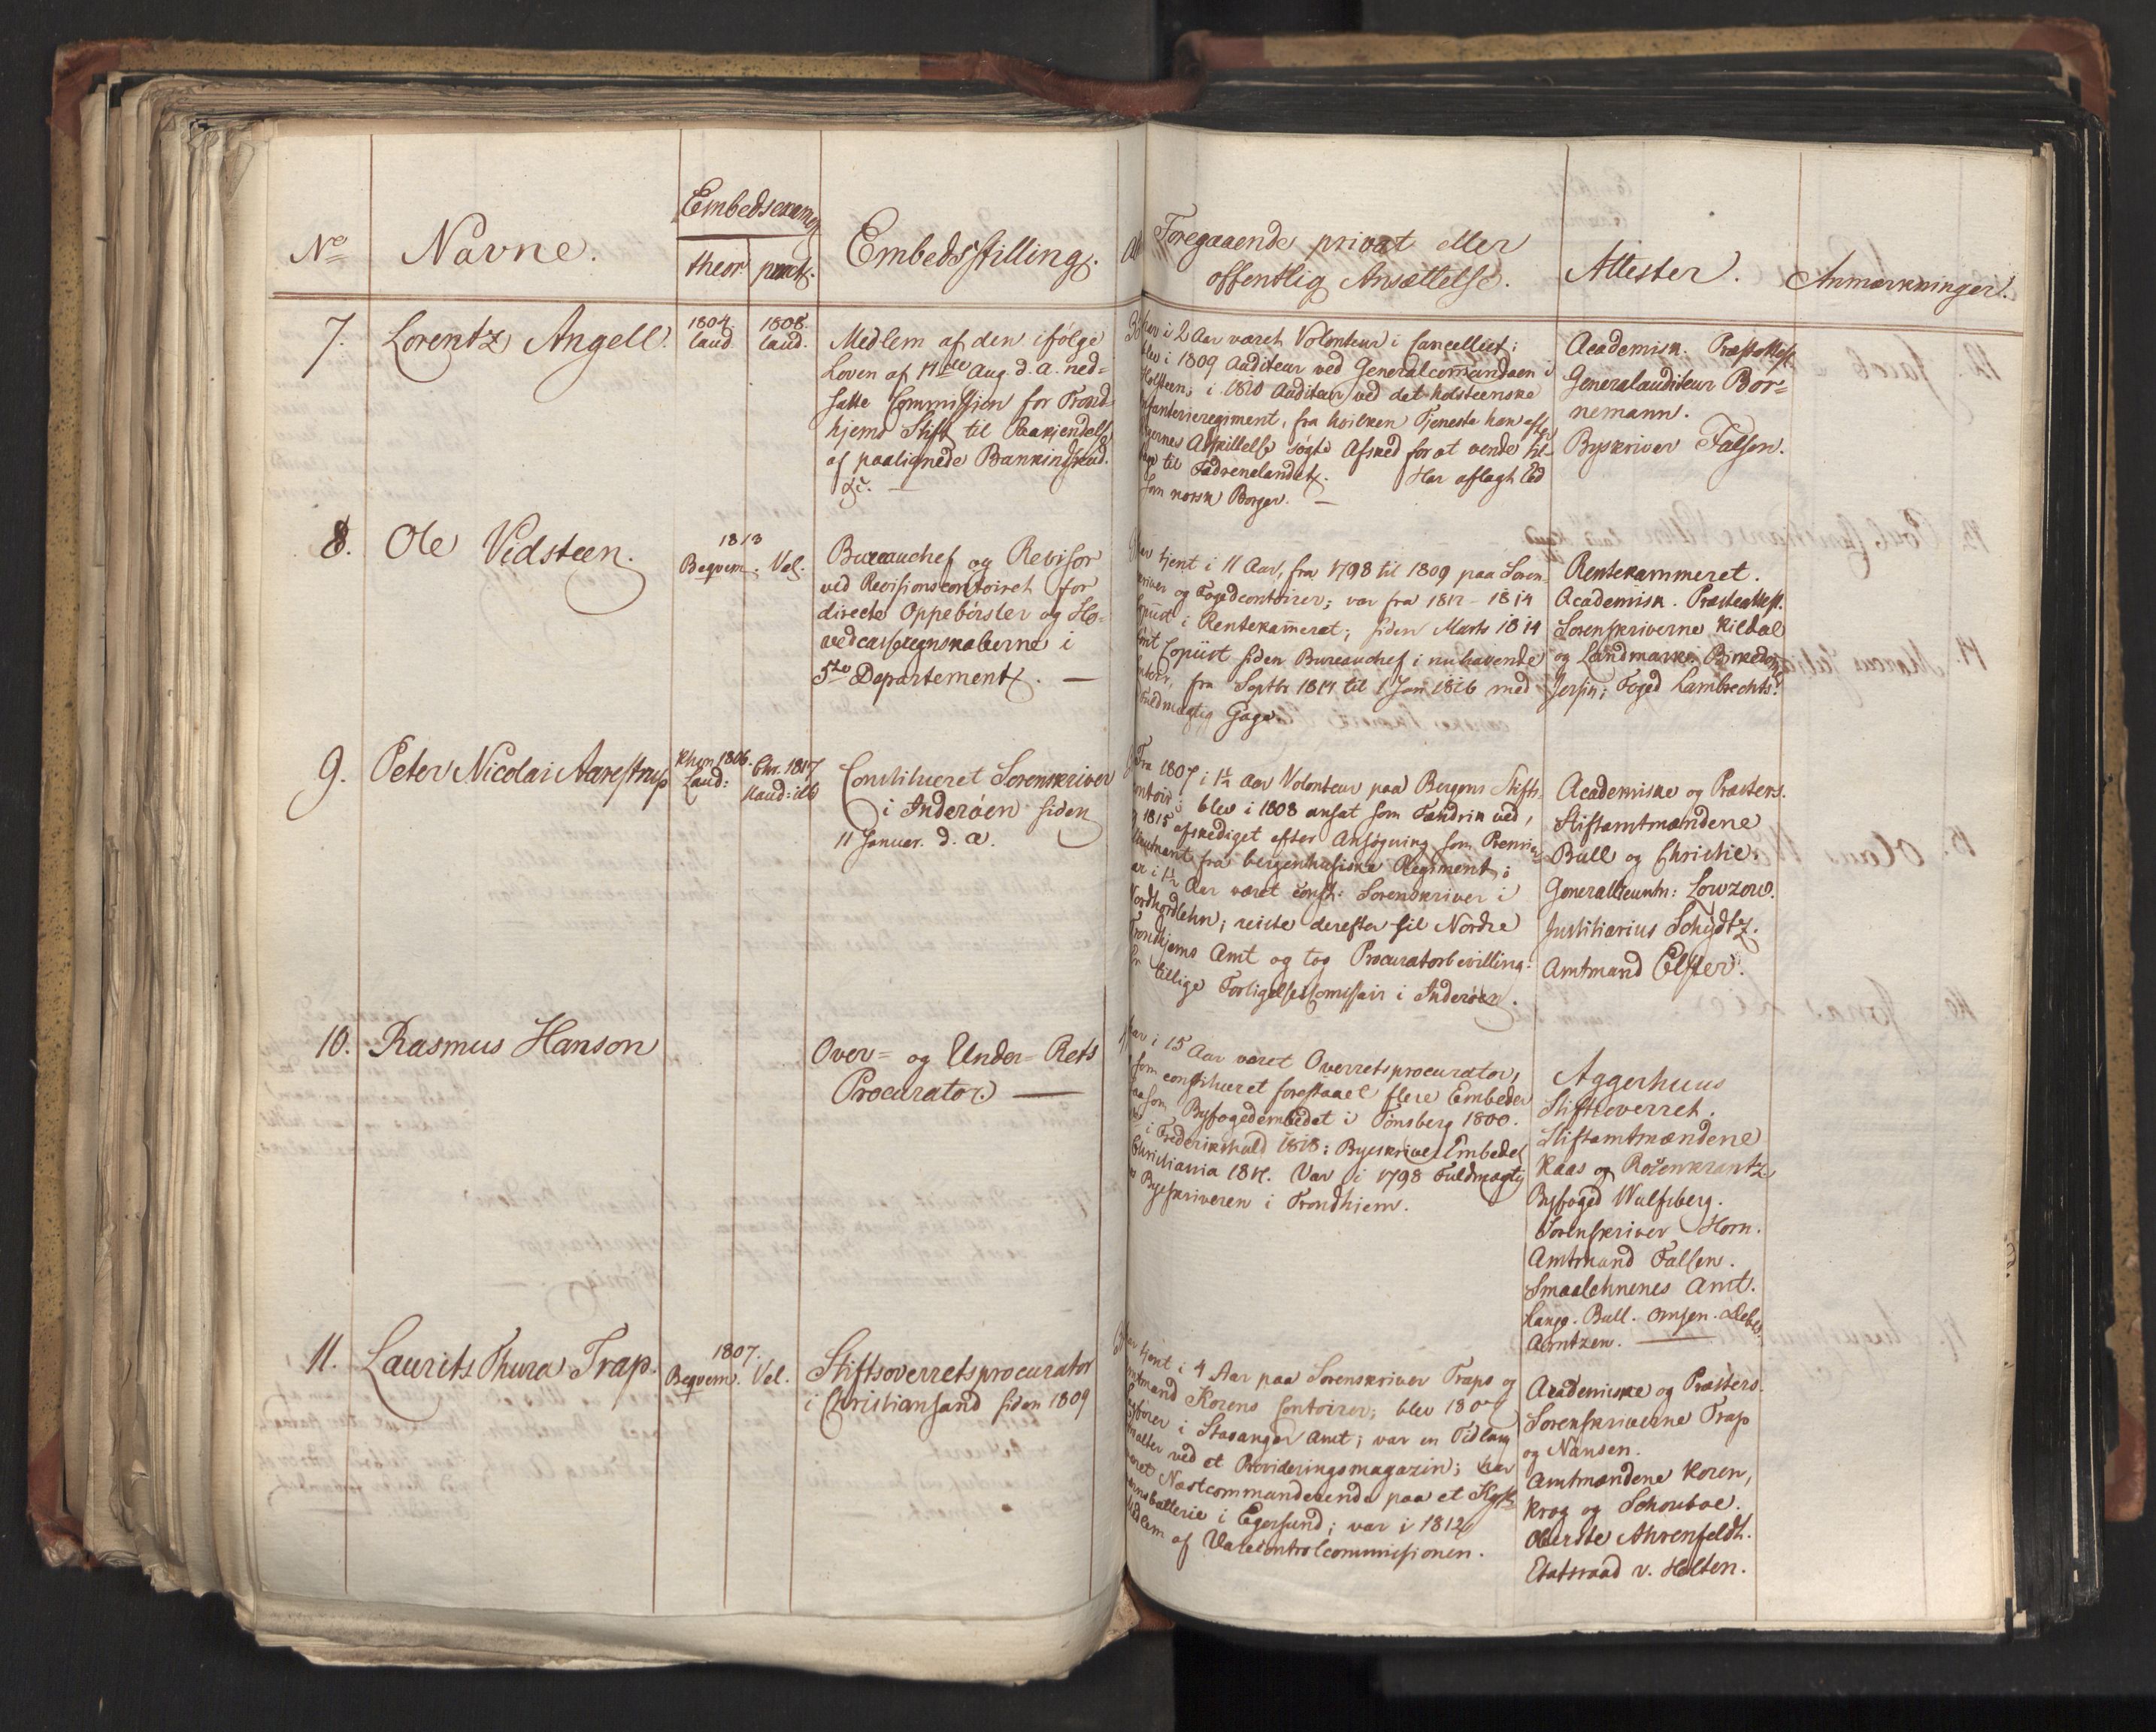 No
Navne.
Embedsexamen
theor. pract.
Embedsstilling.
Foregaaende privat eller
offentlig Ansættelse.
Attester.
Anmærkninger.
7. Lorentz Angell.
1804. laud. 1808. laud.
Medlem af den ifølge
Loven af 17de Aug. d. a. ned=
satte Commission for Trond=
hjems Stift til Paakjendelse
af paalignede Bankindskud.
&c. —
har i 2 Aar været Volonteur i Cancelliet;
blev i 1809 Auditeur ved Generalcommandoen i
Holsteen; i 1810 Auditeur ved det holsteenske
Infanterieregiment, fra hvilken Tjeneste han efter
Adskillelse søgte Afsked for at vende til-
bage til Fædrenelandet. Har aflagt Ed
som norsk Borger. —
Academisk. Præsteattest.
Generalauditeur Bor=
nemann.
Byskriver Falsen.
8. Ole Vidsteen.
1813
Beqvem. Vel.
Bureauchef og Revisor
ved Revisionscontoiret for
directe Oppebørsler og Ho=
vedcasseregnskaberne i
5te Departement. —
har tjent i 11 Aar, fra 1798 til 1809 paa Soren-
skriver og Fogedcontoirer; var fra 1812 - 1814
Copiist i Rentekammeret; siden Marts 1814
Copiist siden Bureauchef i nuhavende
fra Septbr 1814 til 1 Jan 1816 med
Fuldmægtig Gage.
Rentekammeret.
Academisk. Præsteattest.
Sorenskriverne Kildal
og Landmark. Birkedom.
Jersin; Foged Lambrechts.
9. Peter Nicolai Aarestrup
Khvn 1806. Laud:
Chr. 1817 Haud: ill.
Constitueret Sorenskriver
i Inderøen siden
11 Januar. d. a.
Fra 1807 i 1½ Aar Volonteur paa Bergens Stifts-
contoir; blev i 1808 ansat som Fændrik ved,
og 1815 afskediget efter Ansøgning som Premier-
lieutnant fra bergenhusiske Regiment;
har i 1½ Aar været const: Sorenskriver i
Nordhordlehn; reiste derefter til Nordre
Trondhjems Amt og tog Procuratorbevilling:
Er tillige Forligelsescommissair i Inderøen.
Academiske og Præsters.
Stiftamtmændene
Bull og Christie.
Generallieutn: Lowzow.
Justitiarius Schydtz.
Amtmand Elster.
10. Rasmus Hanson
Over= og Under=Rets
Procurator. —
har i 15 Aar været Overretsprocurator,
som constitueret forestaaet flere Embeder
saasom Byfogedembedet i Tønsberg 1800.
i Frederikshald 1818; Byeskriver Embedet
Christiania 1817. Var i 1798 Fuldmægtig
Byeskriveren i Trondhiem.
Aggerhuus
Stiftsoverret.
Stiftamtmændene
Kaas og Rosenkrantz.
Byfoged Wulfsberg.
Sorenskriver Horn.
Amtmand Falsen.
Smaalehnenes Amt.
Lange. Bull. Omsen. Debes.
Aorntzen. —
11. Laurits Thura Trap.
1807.
Beqvem. Vel.
Stiftsoverretsprocurator
i Christiansand siden 1809
har tjent i 4 Aar paa Sorenskriver Traps og
Amtmand Korens Contoirer; blev 1807
Sagfører i Stavanger Amt; var en Tidlang
Forvalter ved et Provideringsmagazin; har
været Næstcommanderende paa et Kyst-
værnsbatterie i Egersund; var i 1812
Medlem af Varecontrolcommissionen.
Academiske og Præsters.
Sorenskriverne Trap
og Nansen.
Amtmændene Koren,
Krog og Schouboe.
Oberste Ahrenfeldt.
Etatsraad v. Holten.